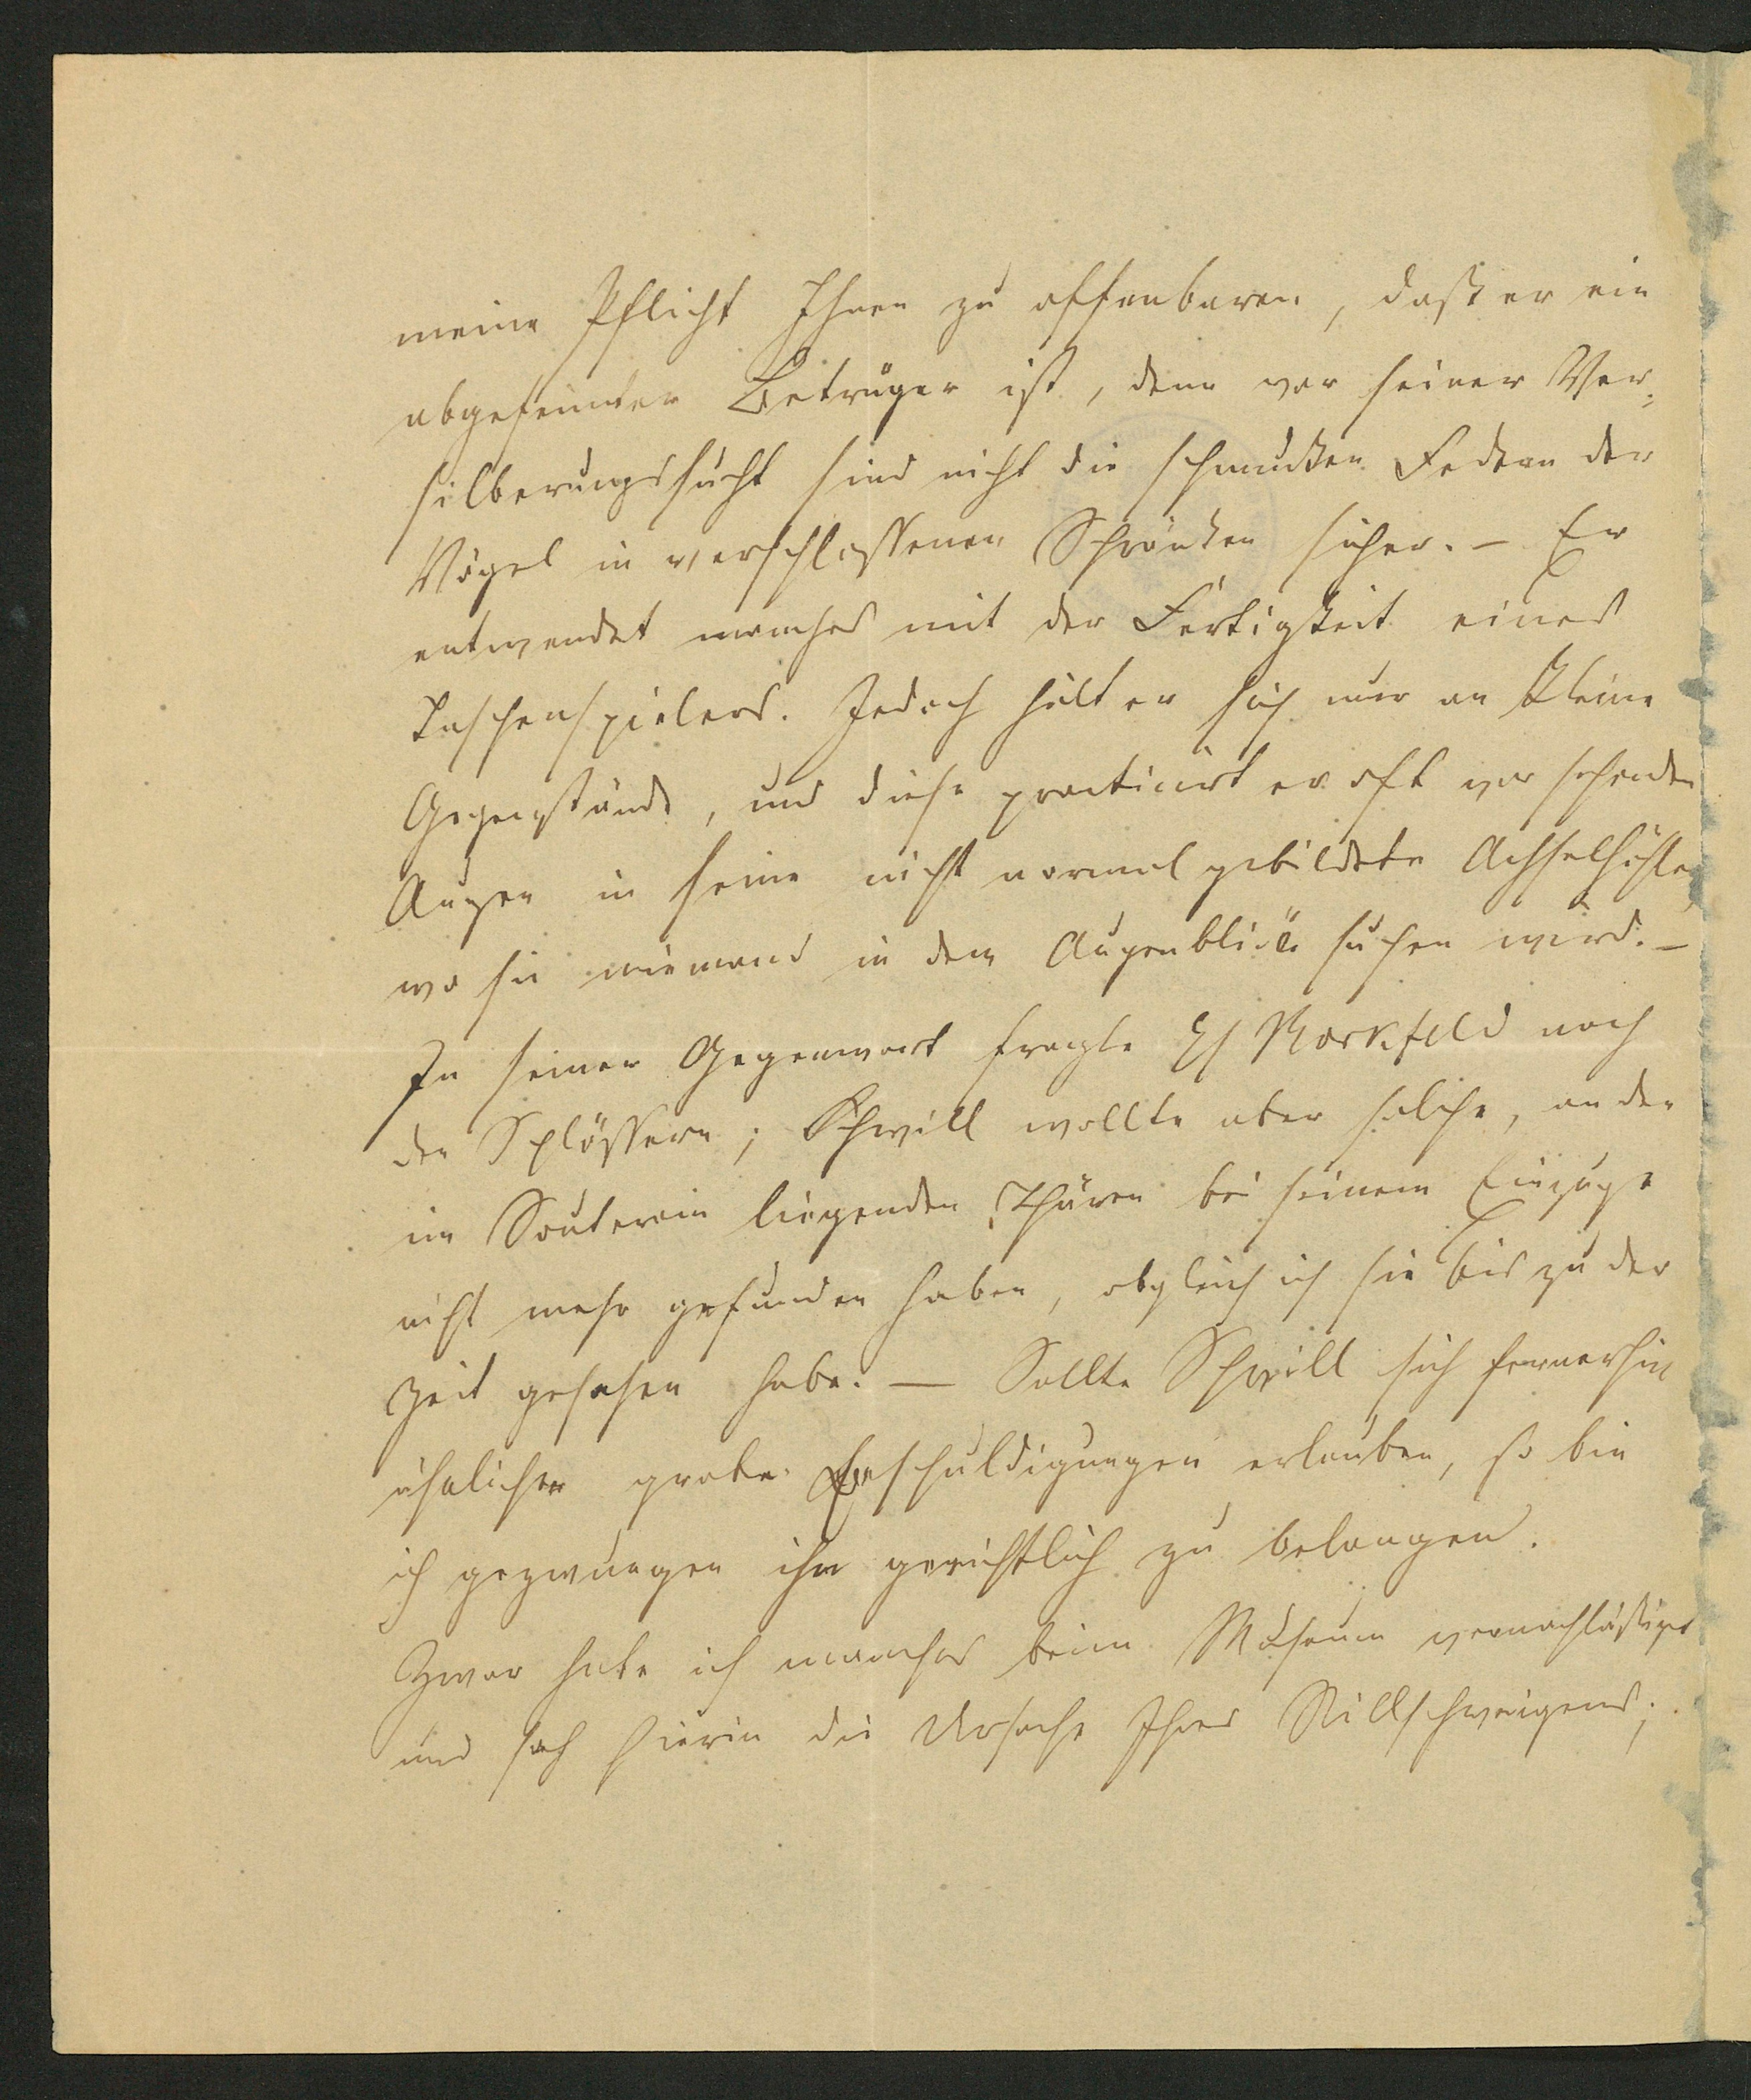 meine Pflicht Ihnen zu offenbaren, daß er ein
abgefeimter Betrüger ist, denn vor seiner Ver-
silberungssucht sind nicht die schmucken Federn der
Vögel in verschlossenen Schränken sicher. – Er
entwendet manches mit der Fertigkeit eines
Taschenspielers. Jedoch hält er sich nur an kleine
Gegenstände, und diese practicirt er oft vor sehenden
Augen in seine nicht normal gebildete Achselhöhle,
wo sie niemand in dem Augenblick suchen wird. –
In seiner Gegenwart fragte H Markfeld nach
den Schlössern; Schrill wollte aber solche, an den
im Souterain liegenden Thüren bei seinem Einzuge
nicht mehr gefunden haben, obgleich ich sie bis zu der
Zeit gesehen habe. — Sollte Schrill sich fernerhin
ähnliche grobe Beschuldigungen erlauben, so bin
ich gezwungen ihn gerichtlich zu belangen.
Zwar habe ich manches beim Museum vernachläßigt
und sah hierin die Ursache Ihres Stillschweigens;